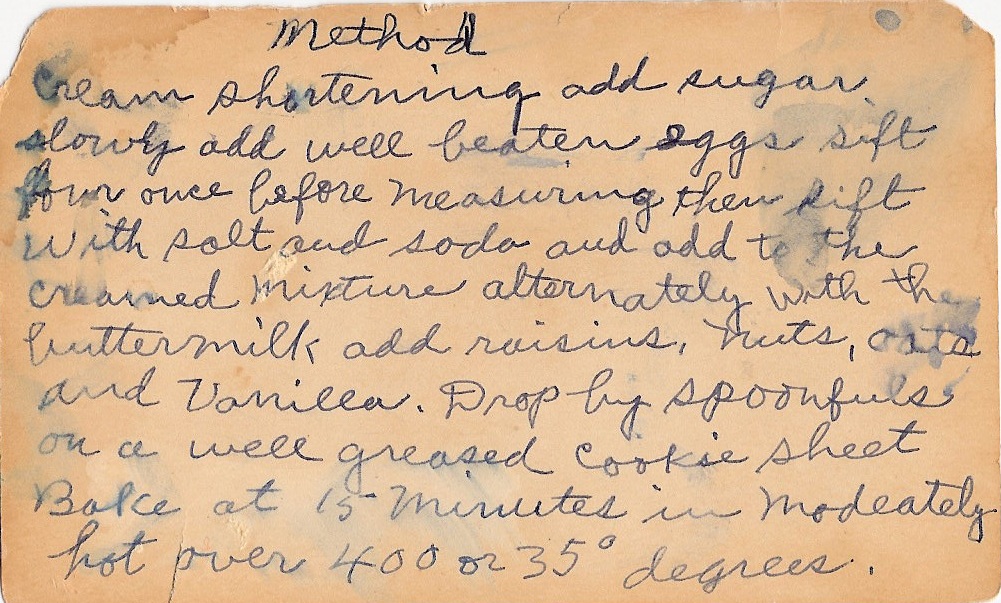 Method
Cream shortening add sugar
slowly add well beaten eggs sift
flour once before measuring then sift
with salt and soda and add to the
creamed mixture alternately with the
buttermilk add raisins, nuts, oats
and Vanilla. Drop by spoonfuls
on a well greased cookie sheet
Bake at 15 Minutes in Modeately
hot over 400 or 35° degrees.